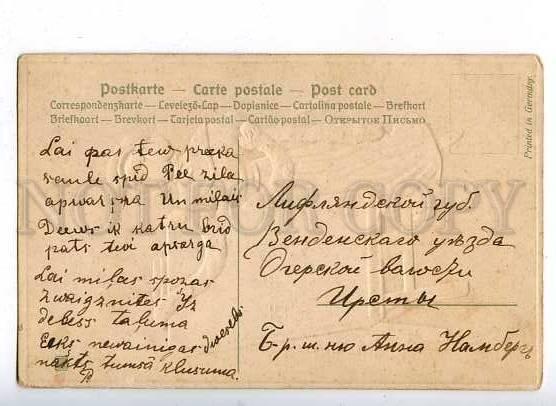 Postkarte — Carte postale — Post card
Correspondenzkarte — Levelező-Lap — Dopisnice — Cartolina postale — Brefkort
Briefkaart — Brevkort — Tarjeta postal — Cartão postal — Открытое Письмо
Printed in Germany.
Lai par tew preeka
saule spid Pee zila
apwarsna Un milais
Deews ik katru brid
pats tevi apsarga
Lai milas spozas
zwaigznites Iz
debess taluma
Eeks newainigas dweseles
nakts tumsā klusuma.
Лифляндской губ.
Венденскаго уѣзда
Огерской волости
Ирсты
Б-р. ш. ню Анна Намбергъ
NOT FOR COPY